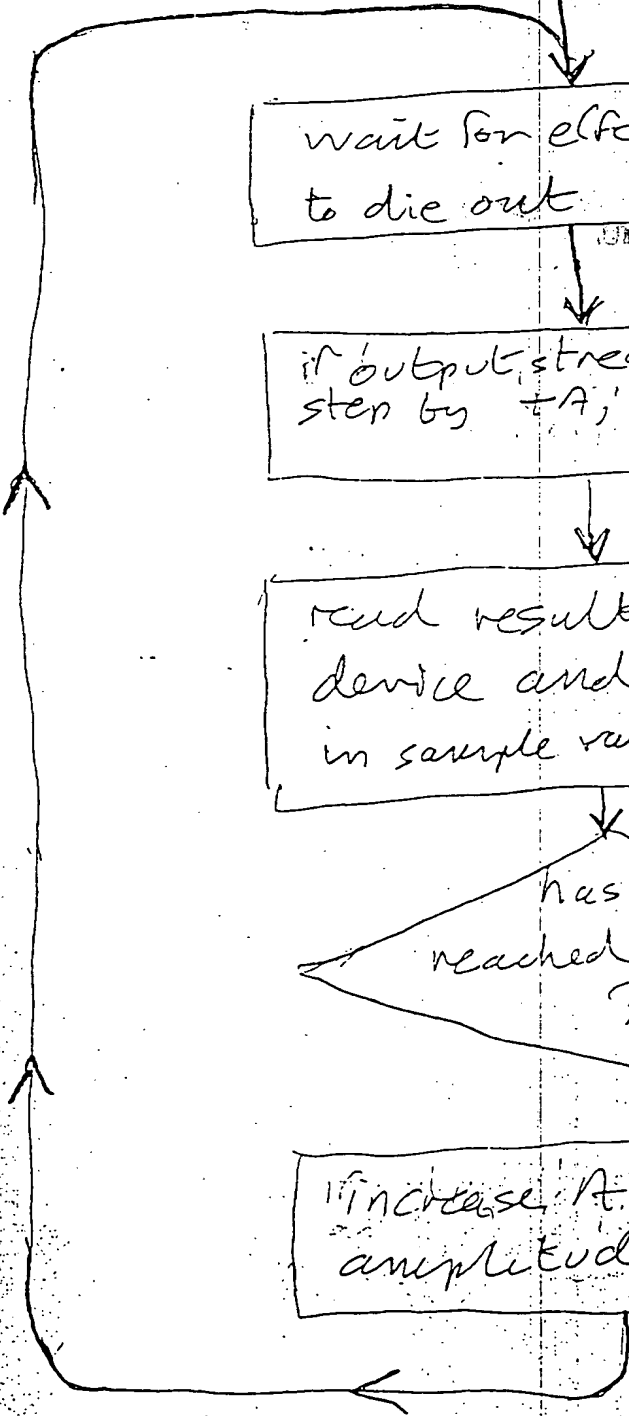 wait for effe
to die out
if output stre
step by +A,
read result
device and
in sample ra
has
reached
?
increase A
amplitud